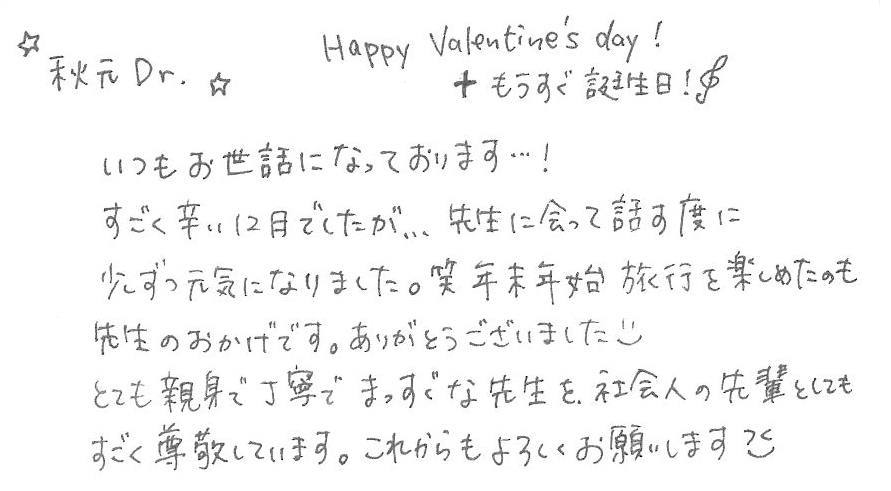 ☆ 秋元 Dr. ☆
Happy Valentine's day!
+ もうすぐ誕生日!
いつもお世話になっております…!
すごく辛い12月でしたが、、、先生に会って話す度に
少しずつ元気になりました。笑 年末年始 旅行を楽しめたのも
先生のおかげです。ありがとうございました
とても親身で丁寧で まっすぐな先生を、社会人の先輩としても
すごく尊敬しています。これからもよろしくお願いします